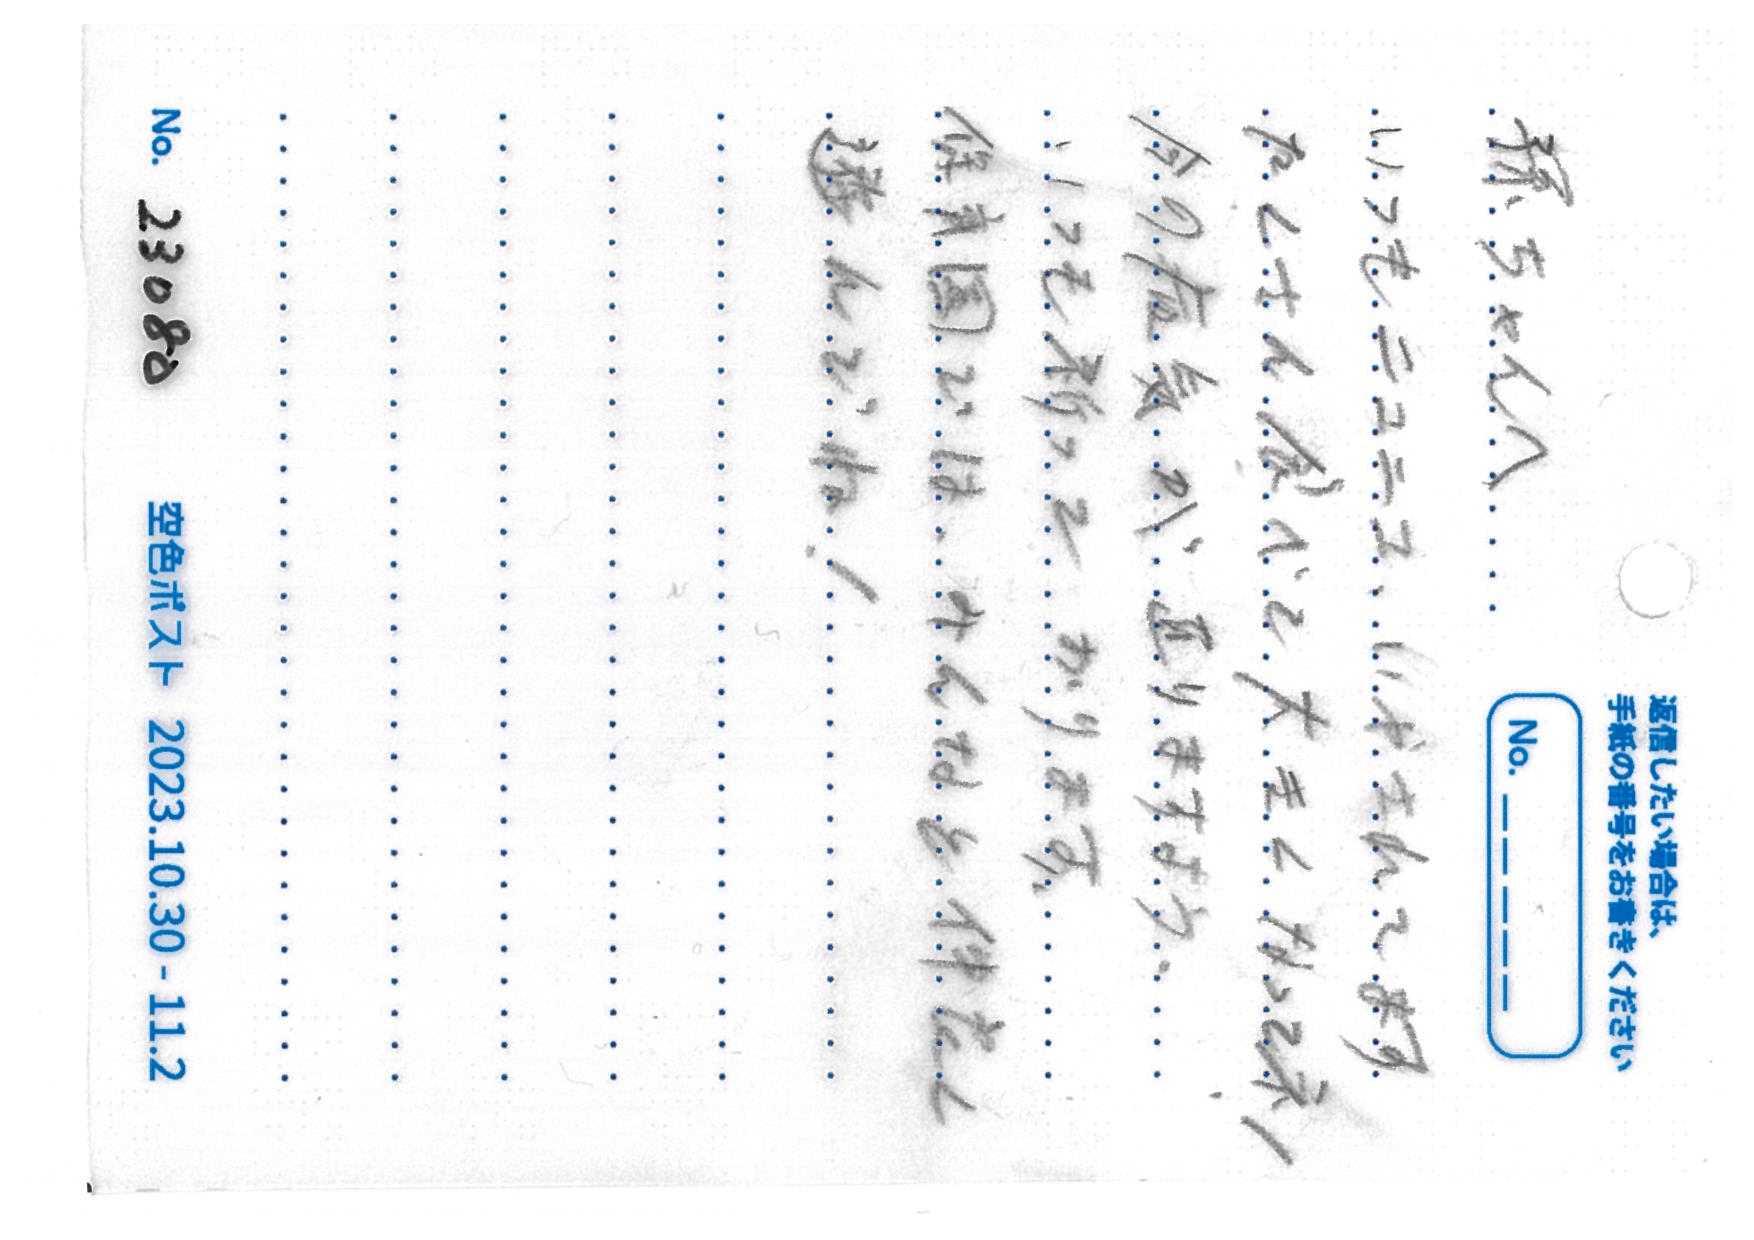 返信したい場合は、
手紙の番号をお書きください
No. _ _ _ _ _
孫ちゃんへ
いつもニコニコ、いやされてます
たくさん食べて大きくなってネ!
今の病気が直りますよう。
いつも祈っております。
保育園では、みんなと仲良く
遊んでね!
No. 23080
空色ポスト 2023.10.30 - 11.2